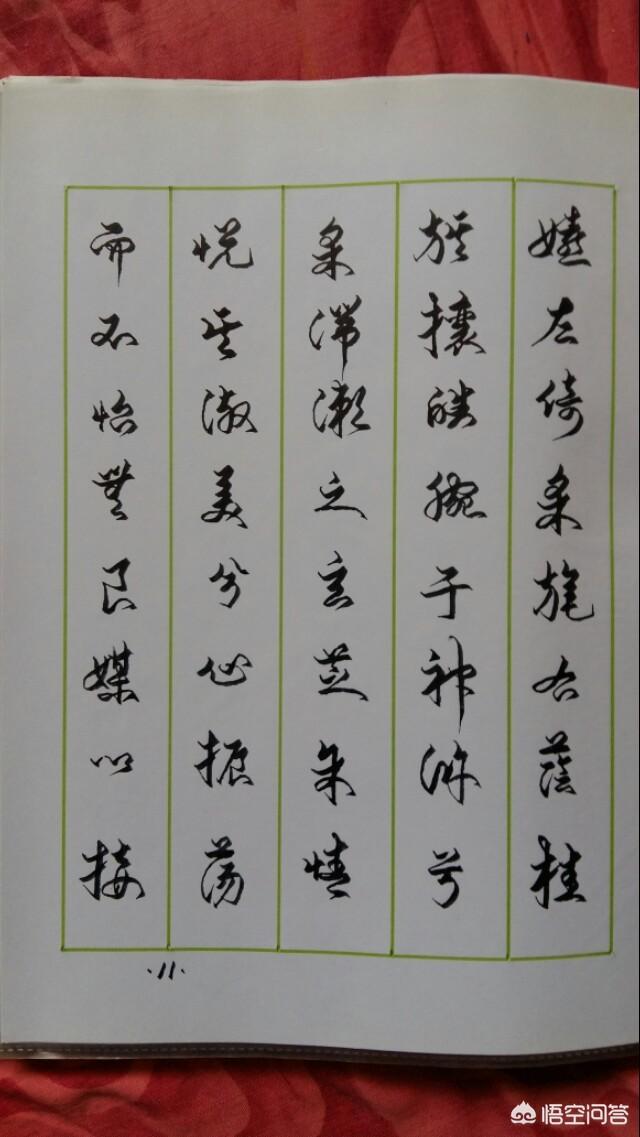 嬉左倚采旄右蔭桂
旗攘皓腕于神滸兮
采湍瀨之玄芝余情
悦其淑美兮心振蕩
而不怡無良媒以接
·11·
悟空问答